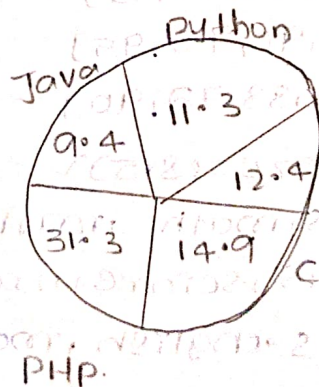 python
Java
11.3
9.4
12.4
31.3
14.9
C
PHP.